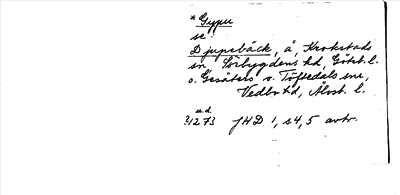 * Gyppu
se:
Djupebäck, å, Krokstads
sn, Sörbygdens hd, Göteb. l.
o. Gesäters o. Töftedals snr,
Vedbo hd, Älvsb. l.
u.d.
31273 JHD 1, s 4, 5 avtr.